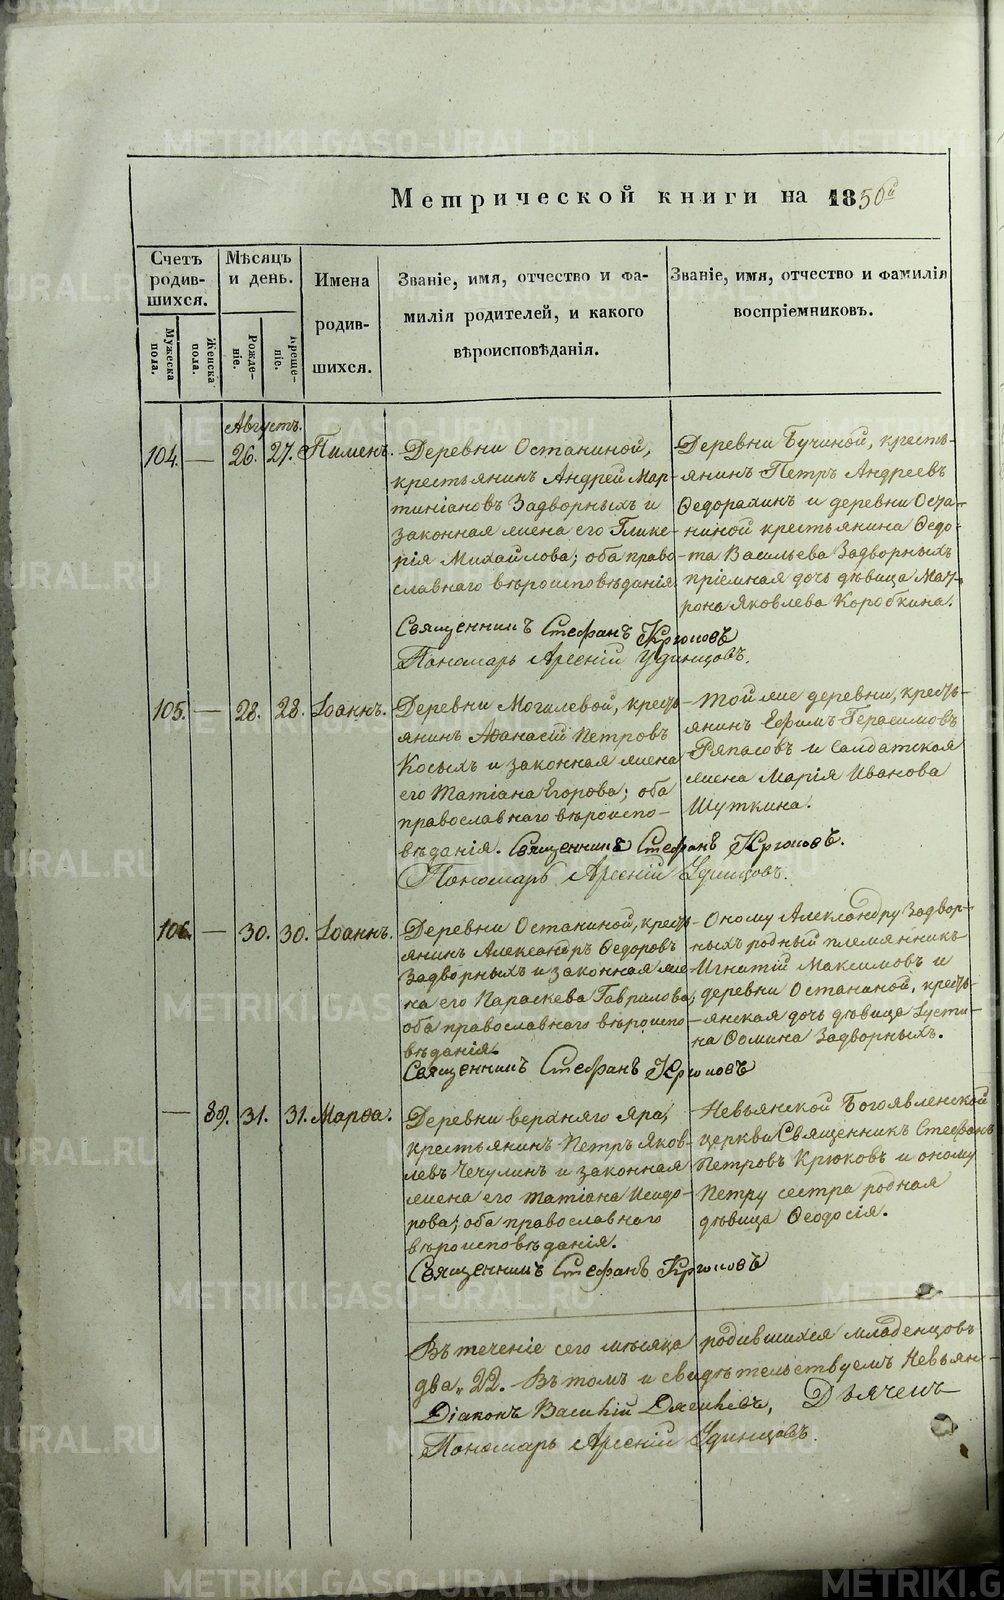 Метрической книги на 1850й
Счетъ родив-шихся.
Мѣсяцъ и день.
Имена родив-шихся.
Званіе, имя, отчество и фа-
милія родителей, и какого
вѣроисповѣданія.
Званіе, имя, отчество и фамилія
воспріемниковъ.
Мужеска пола.
Женска пола.
Рожде-ніе.
Креще-ніе.
Августъ.
104. — 26. 27. Пименъ.
Деревни Останиной,
крестьянинъ Андрей Мар-
тиніановъ Задворныхъ и
законная жена его Глике-
рія Михайлова; оба право-
славнаго вѣроисповѣданія
Деревни Бучиной, кресть-
янинъ Петръ Андреевъ
Ѳедорахинъ и деревни Оста-
ниной крестьянина Ѳедо-
та Васильева Задворныхъ
пріемная дочь дѣвица Мат-
рона Яковлева Коробкина.
Священникъ Стефанъ Крюковъ
Пономарь Арсеній Удинцовъ.
105. — 28. 28. Іоаннъ.
Деревни Могилевой, кресть-
янинъ Аѳанасій Петровъ
Косыхъ и законная жена
его Татіана Егорова; оба
православнаго вѣроиспо-
вѣданія. Священникъ Стефанъ Крюковъ.
Пономарь Арсеній Удинцовъ.
Той же деревни, кресть-
янинъ Ефимъ Герасимовъ
Ряпасовъ и салдатская
жена Марія Иванова
Шуткина.
106. — 30. 30. Іоаннъ.
Деревни Останиной, кресть-
янинъ Александръ Ѳедоровъ
Задворныхъ и законная же-
на его Параскева Гаврилова;
оба православнаго вѣроиспо-
вѣданія.
Священникъ Стефанъ Крюковъ
Оному Александру Задвор-
ныхъ родный племянникъ
Игнатій Максимовъ и
деревни Останиной, кресть-
янская дочь дѣвица Іусти-
на Ѳомина Задворныхъ.
— 89. 31. 31. Марѳа.
Деревни верхняго Яра,
крестьянинъ Петръ Яков-
левъ Чечулинъ и законная
жена его Татіана Исидо-
рова; оба православнаго
вѣроисповѣданія.
Священникъ Стефанъ Крюковъ
Невьянской Богоявленской
церкви Священникъ Стефанъ
Петровъ Крюковъ и оному
Петру сестра родная
дѣвица Ѳеодосія.
Въ теченіе сего мѣсяца родившихся младенцовъ
два, 22. Въ томъ и свидѣтельствуемъ Невьян-
Діаконъ Василій Дягилевъ, Дьячекъ
Пономарь Арсеній Удинцовъ.
METRIKI.GASO-URAL.RU